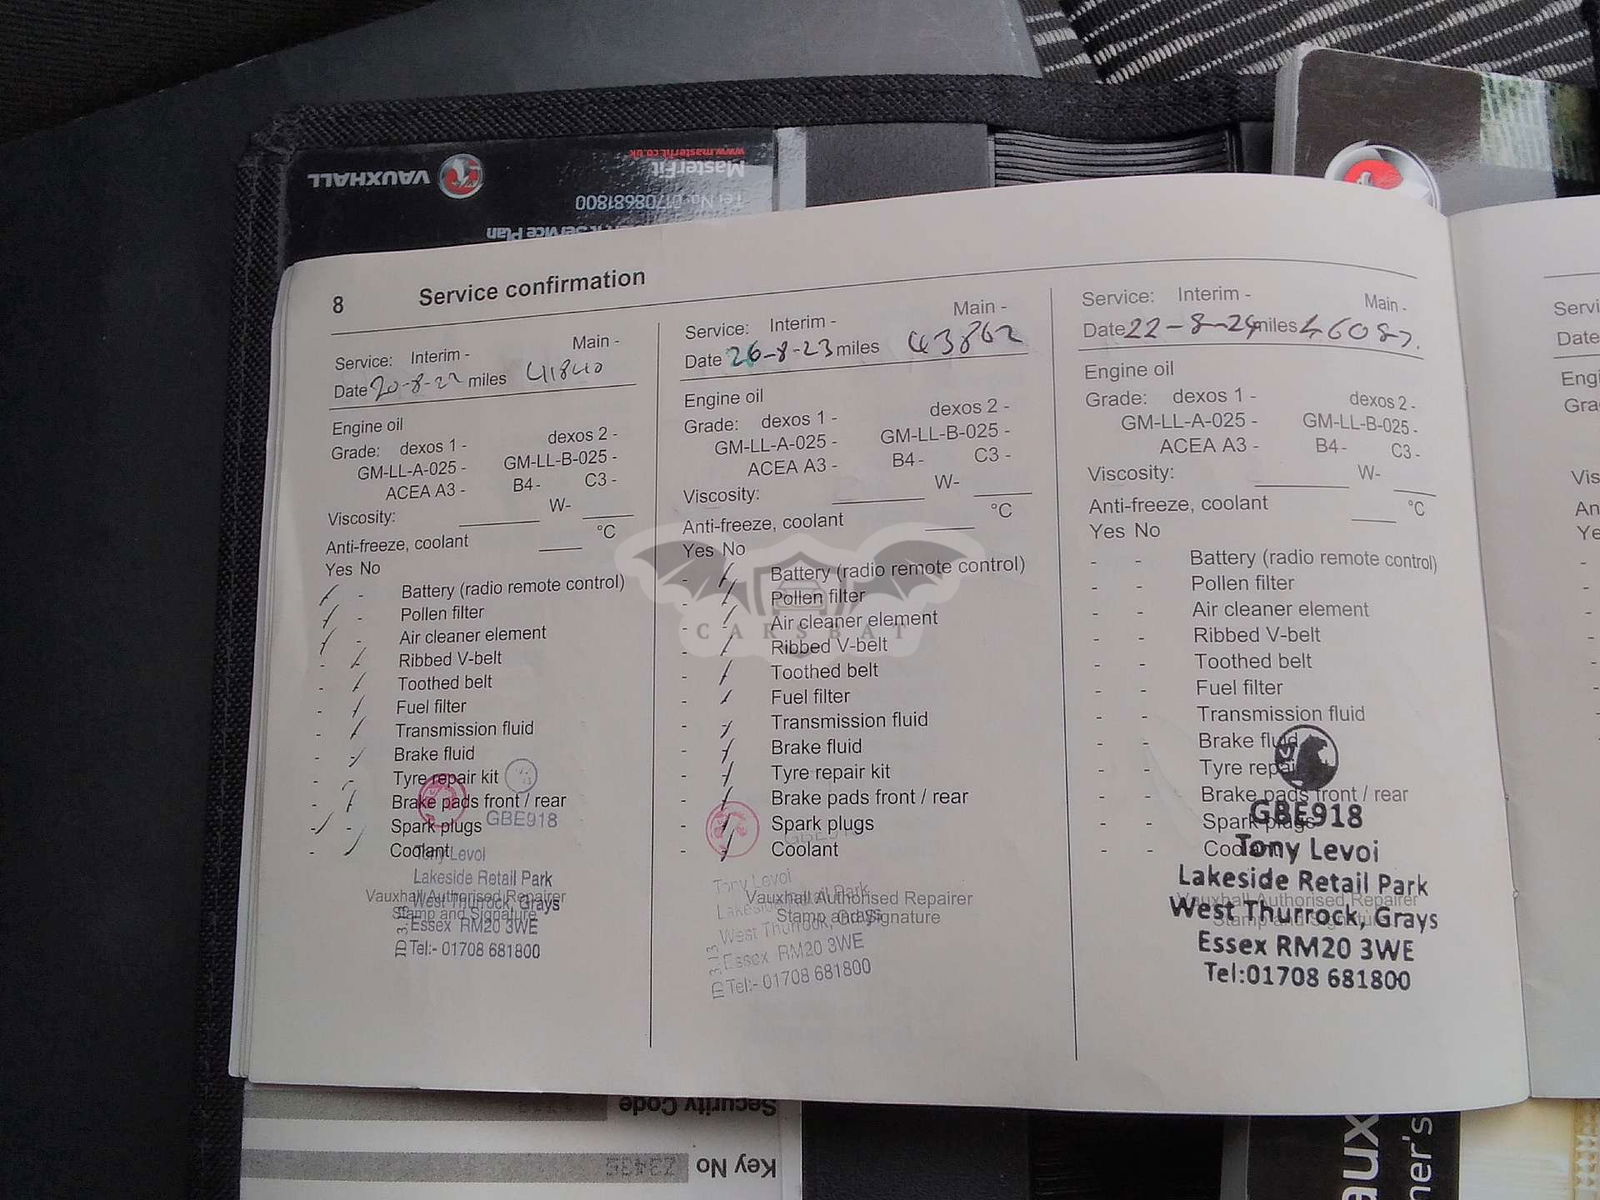 VAUXHALL
MasterFit
www.masterfit.co.uk
Tel No: 01708681800
Service Plan
8 Service confirmation
Service: Interim - Main -
Date 20-8-22 miles 41840
Engine oil
Grade: dexos 1 - dexos 2 -
GM-LL-A-025 - GM-LL-B-025 -
ACEA A3 - B4 - C3 -
Viscosity: W-
Anti-freeze, coolant °C
Yes No
Battery (radio remote control)
Pollen filter
Air cleaner element
Ribbed V-belt
Toothed belt
Fuel filter
Transmission fluid
Brake fluid
Tyre repair kit
Brake pads front / rear
Spark plugs GBE918
Coolant
Tony Levoi
Lakeside Retail Park
Vauxhall Authorised Repairer
West Thurrock, Grays
Stamp and Signature
Essex RM20 3WE
Tel:- 01708 681800
Service: Interim - Main -
Date 26-8-23 miles 43862
Engine oil
Grade: dexos 1 - dexos 2 -
GM-LL-A-025 - GM-LL-B-025 -
ACEA A3 - B4- C3 -
Viscosity: W-
Anti-freeze, coolant °C
Yes No
Battery (radio remote control)
Pollen filter
Air cleaner element
Ribbed V-belt
Toothed belt
Fuel filter
Transmission fluid
Brake fluid
Tyre repair kit
Brake pads front / rear
Spark plugs
Coolant
Tony Levoi
Lakeside Retail Park
Vauxhall Authorised Repairer
Stamp and Signature
West Thurrock, Grays
Essex RM20 3WE
Tel:- 01708 681800
Service: Interim - Main -
Date 22-8-24 miles 46087.
Engine oil
Grade: dexos 1 - dexos 2 -
GM-LL-A-025 - GM-LL-B-025 -
ACEA A3 - B4- C3 -
Viscosity: W-
Anti-freeze, coolant °C
Yes No
Battery (radio remote control)
Pollen filter
Air cleaner element
Ribbed V-belt
Toothed belt
Fuel filter
Transmission fluid
Brake fluid
Tyre repai
Brake pads front / rear
GBE918
Spark plugs
Tony Levoi
Lakeside Retail Park
West Thurrock, Grays
Essex RM20 3WE
Tel:01708 681800
CARSBAT
Servi
Date
Engi
Gra
Vis
An
Ye
Security Code
Key No
aux
ner's